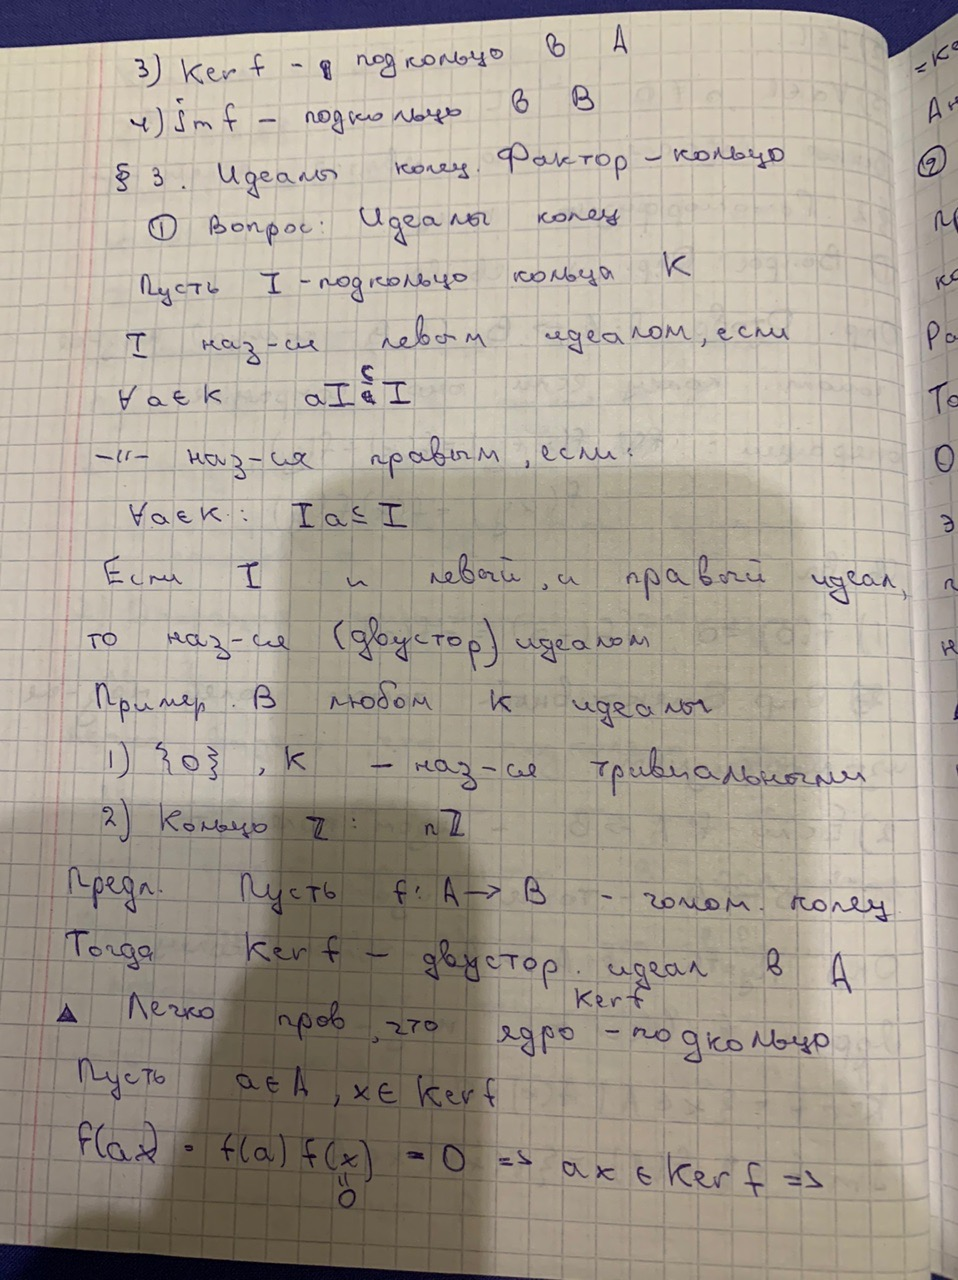 3) Ker f - подкольцо в A
4) im f - подкольцо в B
§ 3. Идеалы колец. Фактор-кольцо
① Вопрос: Идеалы колец
Пусть I - подкольцо кольца K
I наз-ся левым идеалом, если
∀a∈K aI ⊆ I
-//- наз-ся правым, если:
∀a∈K: Ia ⊆ I
Если I и левый, и правый идеал,
то наз-ся (двустор) идеалом
Пример. В любом K идеалы
1) {0}, K - наз-ся тривиальными
2) Кольцо ℤ: nℤ
Предл. Пусть f: A → B - гомом. колец
Тогда Ker f - двустор. идеал в A
▲ Легко пров, что ядро Ker f - подкольцо
Пусть a∈A, x∈Ker f
f(ax) = f(a) f(x) = 0 => ax ∈ Ker f =>
=
0
= Ke
②
Ра
То
О
э